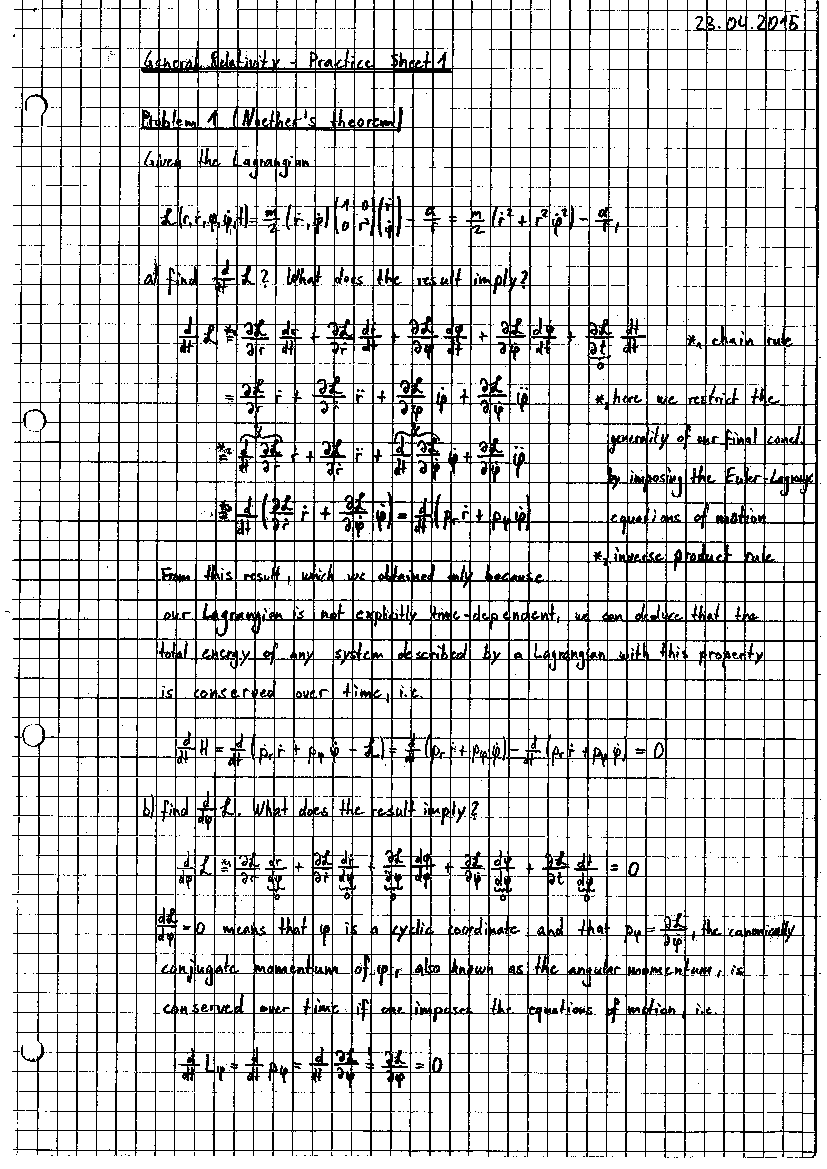 23.04.2015
General Relativity - Practice Sheet 1
Problem 1 (Noether's theorem)
Given the Lagrangian
ℒ(r,ṙ,φ,φ̇,t) = m/2 (ṙ,φ̇) (1 0; 0 r²) (ṙ; φ̇) - α/r = m/2 (ṙ² + r² φ̇²) - α/r,
a) find d/dt ℒ? What does the result imply?
d/dt ℒ =*₁ ∂ℒ/∂r dr/dt + ∂ℒ/∂ṙ dṙ/dt + ∂ℒ/∂φ dφ/dt + ∂ℒ/∂φ̇ dφ̇/dt + ∂ℒ/∂t dt/dt *₁ chain rule
0
= ∂ℒ/∂r ṙ + ∂ℒ/∂ṙ r̈ + ∂ℒ/∂φ φ̇ + ∂ℒ/∂φ̇ φ̈ *₂ here we restrict the
generality of our final concl.
=*₂ d/dt ∂ℒ/∂ṙ ṙ + ∂ℒ/∂ṙ r̈ + d/dt ∂ℒ/∂φ̇ φ̇ + ∂ℒ/∂φ̇ φ̈
by imposing the Euler-Lagrange
=*₃ d/dt (∂ℒ/∂ṙ ṙ + ∂ℒ/∂φ̇ φ̇) = d/dt (pᵣ ṙ + pφ φ̇) equations of motion
*₃ inverse product rule
From this result, which we obtained only because
our Lagrangian is not explicitly time-dependent, we can deduce that the
total energy of any system described by a Lagrangian with this property
is conserved over time, i.e.
d/dt H = d/dt (pᵣ ṙ + pφ φ̇ - ℒ) = d/dt (pᵣ ṙ + pφ φ̇) - d/dt (pᵣ ṙ + pφ φ̇) = 0
b) find d/dφ ℒ. What does the result imply?
d/dφ ℒ =*₁ ∂ℒ/∂r dr/dφ + ∂ℒ/∂ṙ dṙ/dφ + ∂ℒ/∂φ dφ/dφ + ∂ℒ/∂φ̇ dφ̇/dφ + ∂ℒ/∂t dt/dφ = 0
0 0 0 0 0
dℒ/dφ = 0 means that φ is a cyclic coordinate and that pφ = ∂ℒ/∂φ̇, the canonically
conjugate momentum of φ, also known as the angular momentum, is
conserved over time if one imposes the equations of motion, i.e.
d/dt Lφ = d/dt pφ = d/dt ∂ℒ/∂φ̇ =! ∂ℒ/∂φ = 0